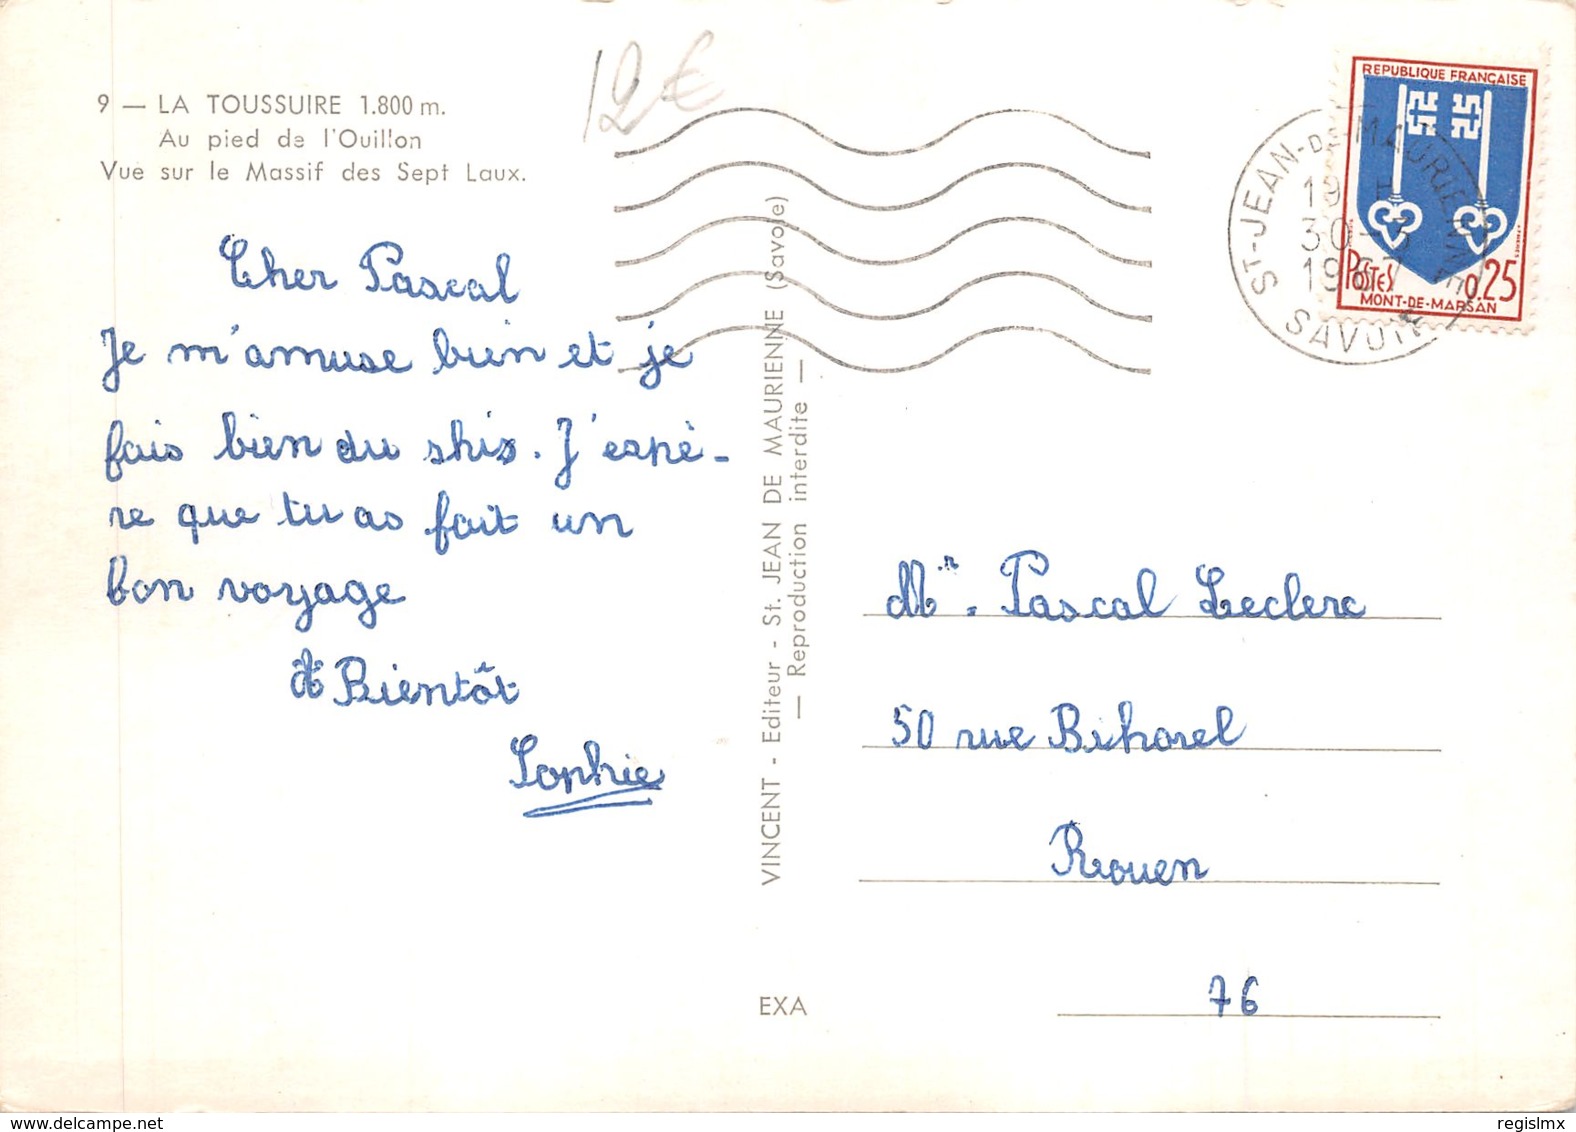 12€
9 — LA TOUSSUIRE 1.800 m.
Au pied de l'Ouillon
Vue sur le Massif des Sept Laux.
Cher Pascal
Je m'amuse bien et je
fais bien du shis. J'espè-
re que tu as fait un
bon voyage
A Bientôt
Sophie
VINCENT - Editeur - St. JEAN DE MAURIENNE (Savoie)
— Reproduction interdite —
EXA
ST-JEAN-DE-MAURIENNE
19 H
30-3
1967
SAVOIE
REPUBLIQUE FRANÇAISE
POSTES 0.25
MONT-DE-MARSAN
Mr. Pascal Leclerc
50 rue Bihorel
Rouen
76
delcampe.net
regislmx